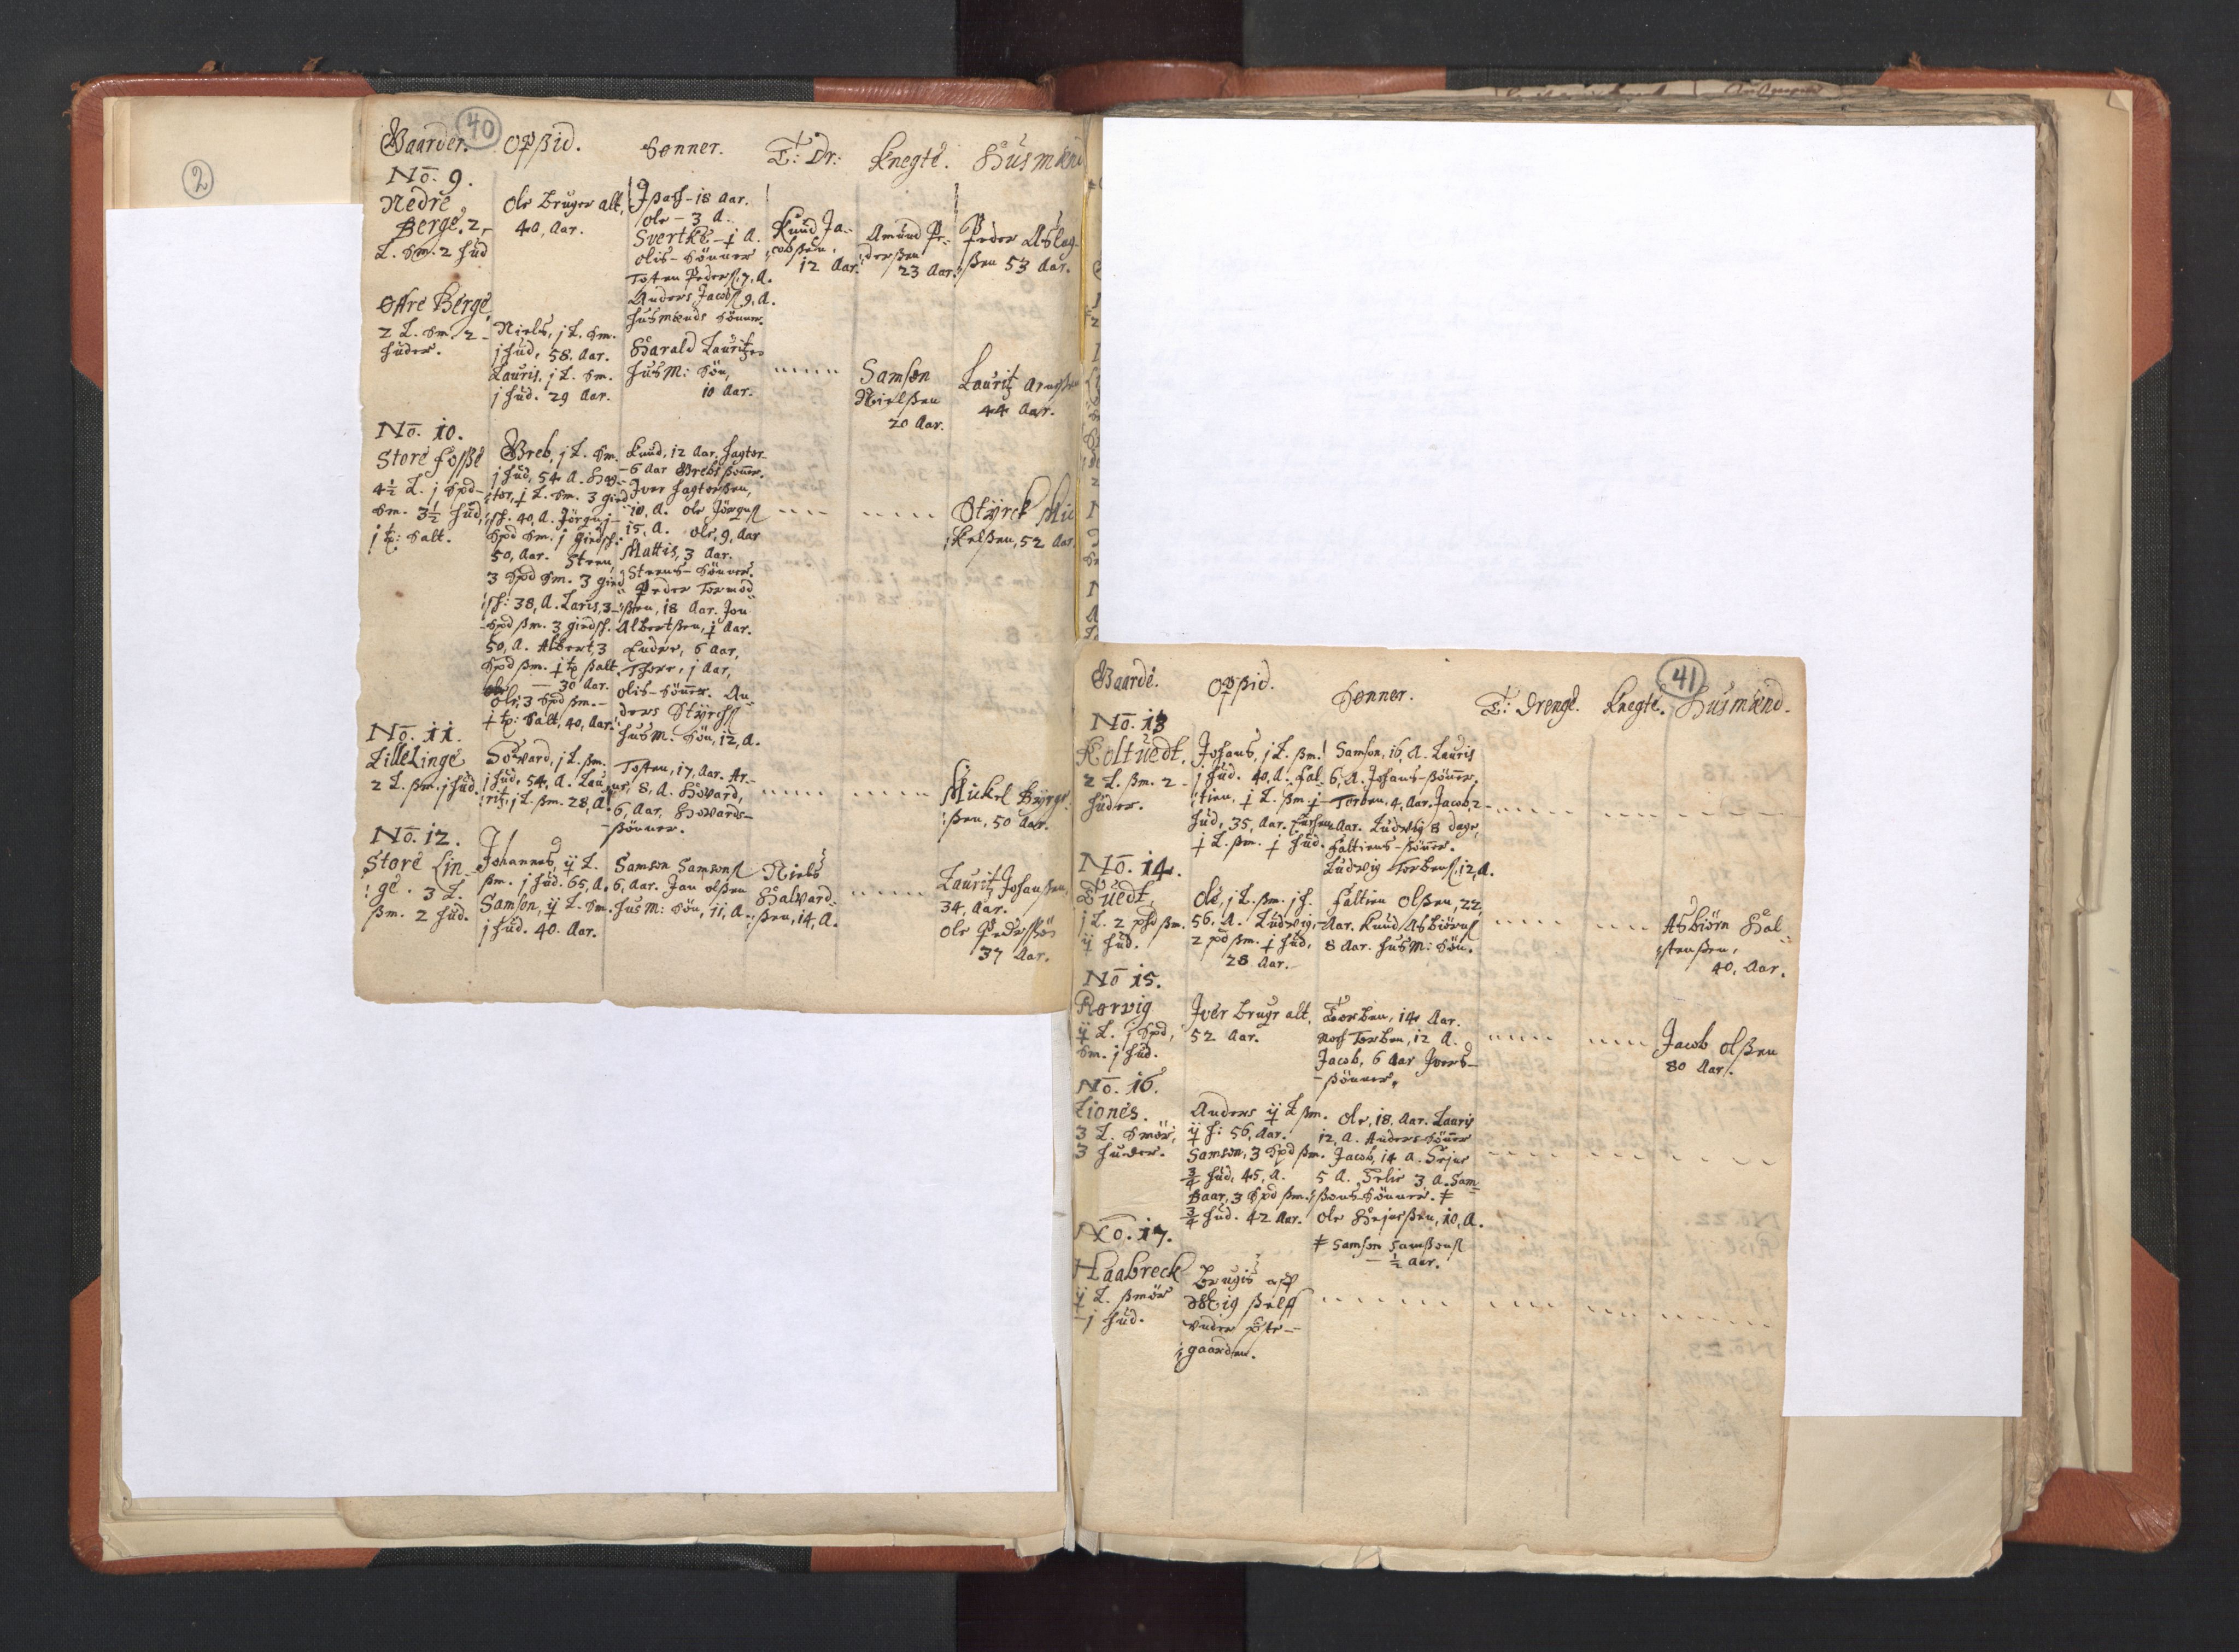 2
40
Gaarder. Opsid. Sønner. T: Dr: Knegte. Huusmænd
No. 9.
Nedre
Berge, 2,
L. Sm. 2 hud
Ole bruger alt,
40, Aar.
Ipass-18 Aar.
Ole - 3 A.
Svertke - j A.
Olis- Sönner
Tosten Peders. 7, A.
Anders Jacobs. 9, A.
husmænds Sönner.
Knud Ja-
cobsen,
12 Aar.
Amund Pe-
dersen
23 Aar.
Peder Aslag-
ßen 53 Aar.
Øffre Berge,
2 L. Sm. 2-
huder.
Niels, j L. Sm.
j hud, 58. Aar.
Lauris, j L. Sm.
j hud. 29 Aar.
Harald Lauritzs
husM: Sön,
10 Aar.
Samson
Nielßen
20 Aar.
Lauritz
44 Aar.
No. 10.
Store Foße
4½ L. j Spd-
Sm. 3½ hud,
j tp: Salt.
Greb, j L. Sm.
j hud, 54 A.
tor, j L. Sm. 3 gied
sk. 40, A. Jörgen j-
Spd Sm. j giedsk:
50, Aar. Steen,
3 Spd Sm. 3 gied
sk: 38, A. Laris, 3-
Spd ßm. 3 giedsk.
50, A. Albert, 3
Spd ßm. j tp ßalt.
30 Aar.
Ole, 3 Spd ßm.-
j tp: Salt, 40, Aar.
Knud, 12 Aar, hagtor-
-6 Aar Grebs ßoner.
Iver hagtorßen,
10, A. Ole Jörgens
15, A. Ole, 9, Aar
Mattis, 3 Aar.
Steens- Sönner.
Peder Tormod
ßen, 18 Aar. Jon
Albertßen, j Aar.
Endre, 6 Aar,
Thore, j Aar,
Olis- Sönner. An-
ders Styrcks
husM: Sön, 12, A.
Styrck Mic
kelßen, 52 Aar
No. 11.
Lille Linge
2 L. ßm. j hud.
Howard, j L. ßm.
j hud, 54, A. Lau
ritz, j L. ßm. 28, A.
Tosten, 17, Aar. Ar-
ne, 8, A. Howard,
6, Aar, Howards-
-ßönner.
Mickel Byrge
ßen, 50 Aar.
No. 12.
Store Lin-
ge. 3 L.
ßm. 2 hud.
Johannes, ij L.
ßm. j hud. 65, A.
Samson, ij L. Sm.
j hud. 40. Aar.
Samson Samsons
6, Aar. Jan Olßen
husM: Sön, 11, A.
Niels
Halvard-
ßen, 14, A.
Lauritz Johanßen,
34, Aar.
Ole Pederßön
37 Aar.
41
Gaarde. Opsid. Sønner. T: Drenge. Knegte. Husmænd.
No. 13
Koltuedt.
2 L. ßm. 2-
huder.
Johans, j L. ßm.
j hud. 40, A. fal-
tien, j L. ßm. j-
hud, 35, Aar.
j L. ßm. j hud.
Samson, 16, A. Lauris
6, A. Johans-ßönner.
Torben, 4, Aar. Jacob, 2-
Aar. Ludvig 8 dage,
faltiens-ßönner.
Ludvig Torbens. 12, A.
No. 14.
Tuedt,
j L. 2 pd ßm.
ij hud.
Ole, j L. ßm. j h.
56, A. Ludvig,
2 pd ßm. j hud,
28 Aar.
faltien Olßen, 22
Aar. Knud Asbiörns
8 Aar. husM: Sön.
Asbiörn Hal-
stenßen,
40, Aar.
No 15.
Rørvig
ij L. j Spd,
Sm. j hud.
Iver brugr alt,
52 Aar.
Torben, 14 Aar.
noch Torben, 12 A.
Jacob, 6 Aar Ivers-
-ßönner.
Jacob Olßen
80 Aar.
No. 16.
Liones.
3 L. Smör,
3 huder.
Anders ij L ßm.
ij h: 56, Aar.
Samson, 3 Spd ßm.
¾ hud, 45, A.
Baar, 3 Spd ßm.
¾ hud. 42 Aar.
Ole, 18. Aar. Lauris
12, A. Anders-Sönner
Jacob, 14 A.
5 A. 3 A. Sam-
ßons-Sönner. ‡
Ole 10, A.
‡ Samson Samßons
- ½ Aar.
No. 17.
Haabreck
ij L. ßmör
- j hud.
Brugis aff
ßelff
vnder
gaarden.